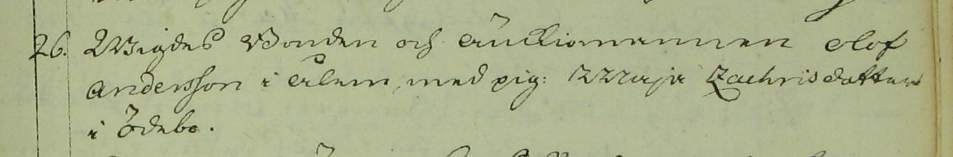 26. Wigdes Bonden och Auctionmannen Olof
Andersson i Ålem, med pig: Maja Zachrisdatter
i Ödebo.